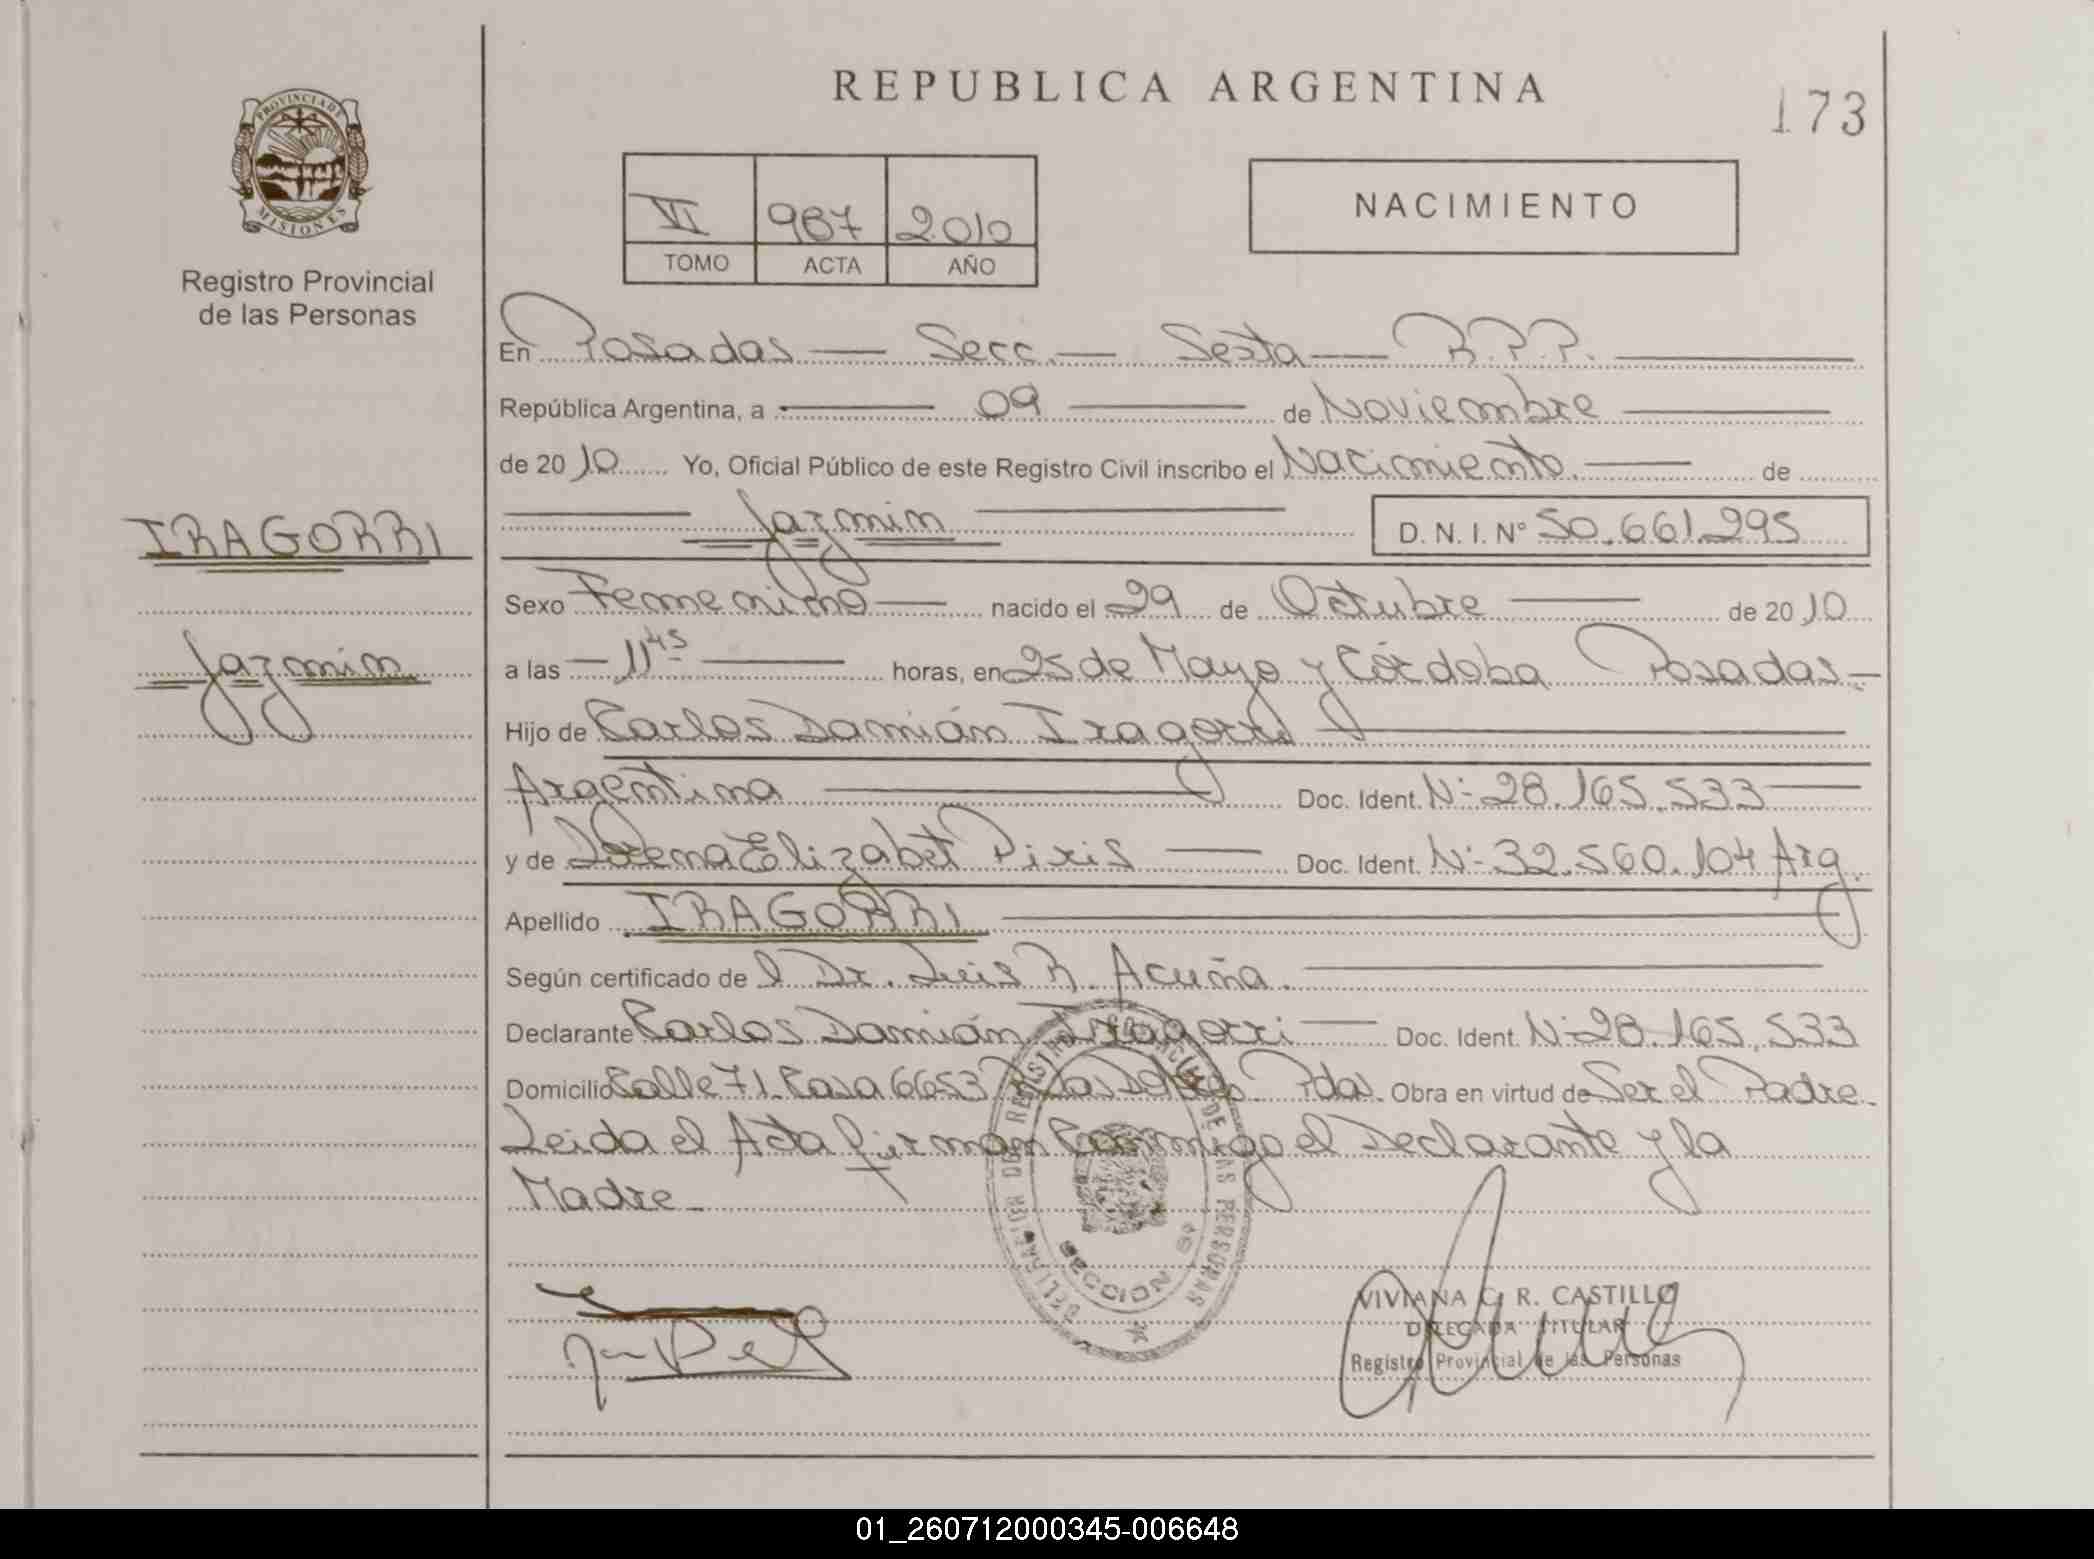 REPUBLICA ARGENTINA
173
PROVINCIA DE
MISIONES
Registro Provincial
de las Personas
VI 967 2010
TOMO ACTA AÑO
NACIMIENTO
En Posadas — Secc. — Sexta — R.P.P. —
República Argentina, a — 09 — de Noviembre —
de 2010 Yo, Oficial Público de este Registro Civil inscribo el Nacimiento. — de
— Jazmin — D. N. I. Nº 50.661.295
IRAGORRI
Sexo Femenino — nacido el 29 de Octubre — de 2010
Jazmin
a las — 11 45 — horas, en 25 de Mayo y Córdoba Posadas —
Hijo de Carlos Damián Iragorri —
Argentina — Doc. Ident. Nº 28.165.533 —
y de Elizabet Piris — Doc. Ident. Nº 32.560.104 Arg.
Apellido IRAGORRI —
Según certificado del Dr. Luis R. Acuña. —
Declarante Carlos Damián Iragorri — Doc. Ident. Nº 28.165.533
Domicilio Calle 71. Casa 6653 Pdas. Obra en virtud de Ser el Padre.
Leida el Acta firman Conmigo el Declarante y la
Madre _
REGISTRO PROVINCIAL DE LAS PERSONAS
SECCION 6º
VIVIANA C. R. CASTILLO
DELEGADA TITULAR
Registro Provincial de las Personas
01_260712000345-006648